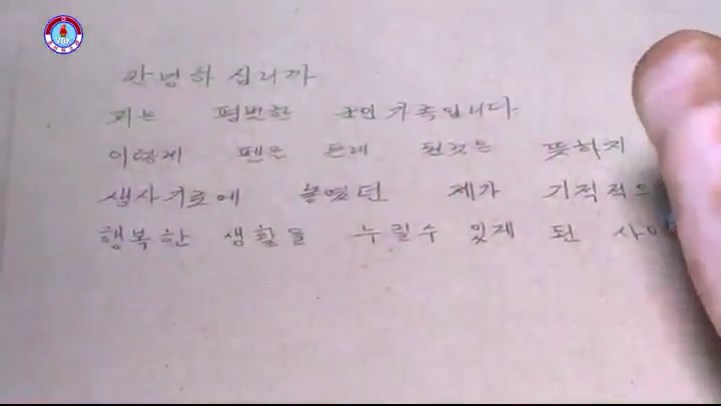 안녕하십니까
저는 평범한 군인가족입니다.
이렇게 펜을 들게 된것은 뜻하지
생사기로에 놓였던 제가 기적적으
행복한 생활을 누릴수 있게 된 사